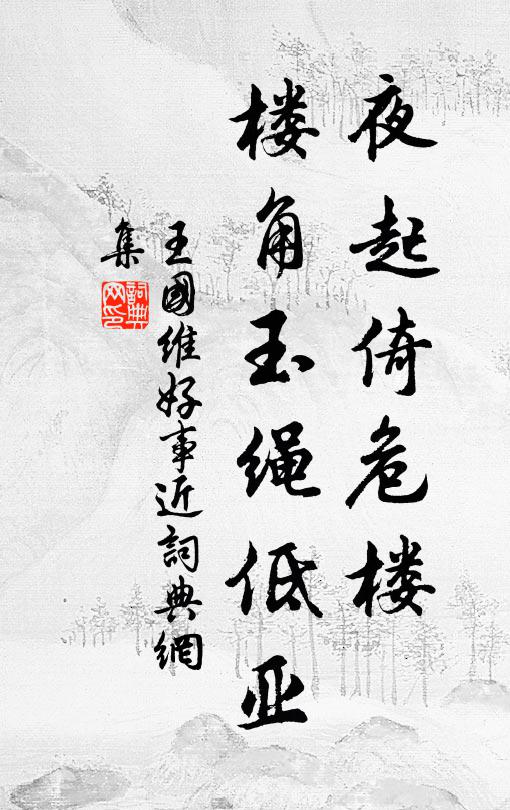 夜起倚危楼
楼角玉绳低亚
王國维好事近詞典網
集
詞典网印